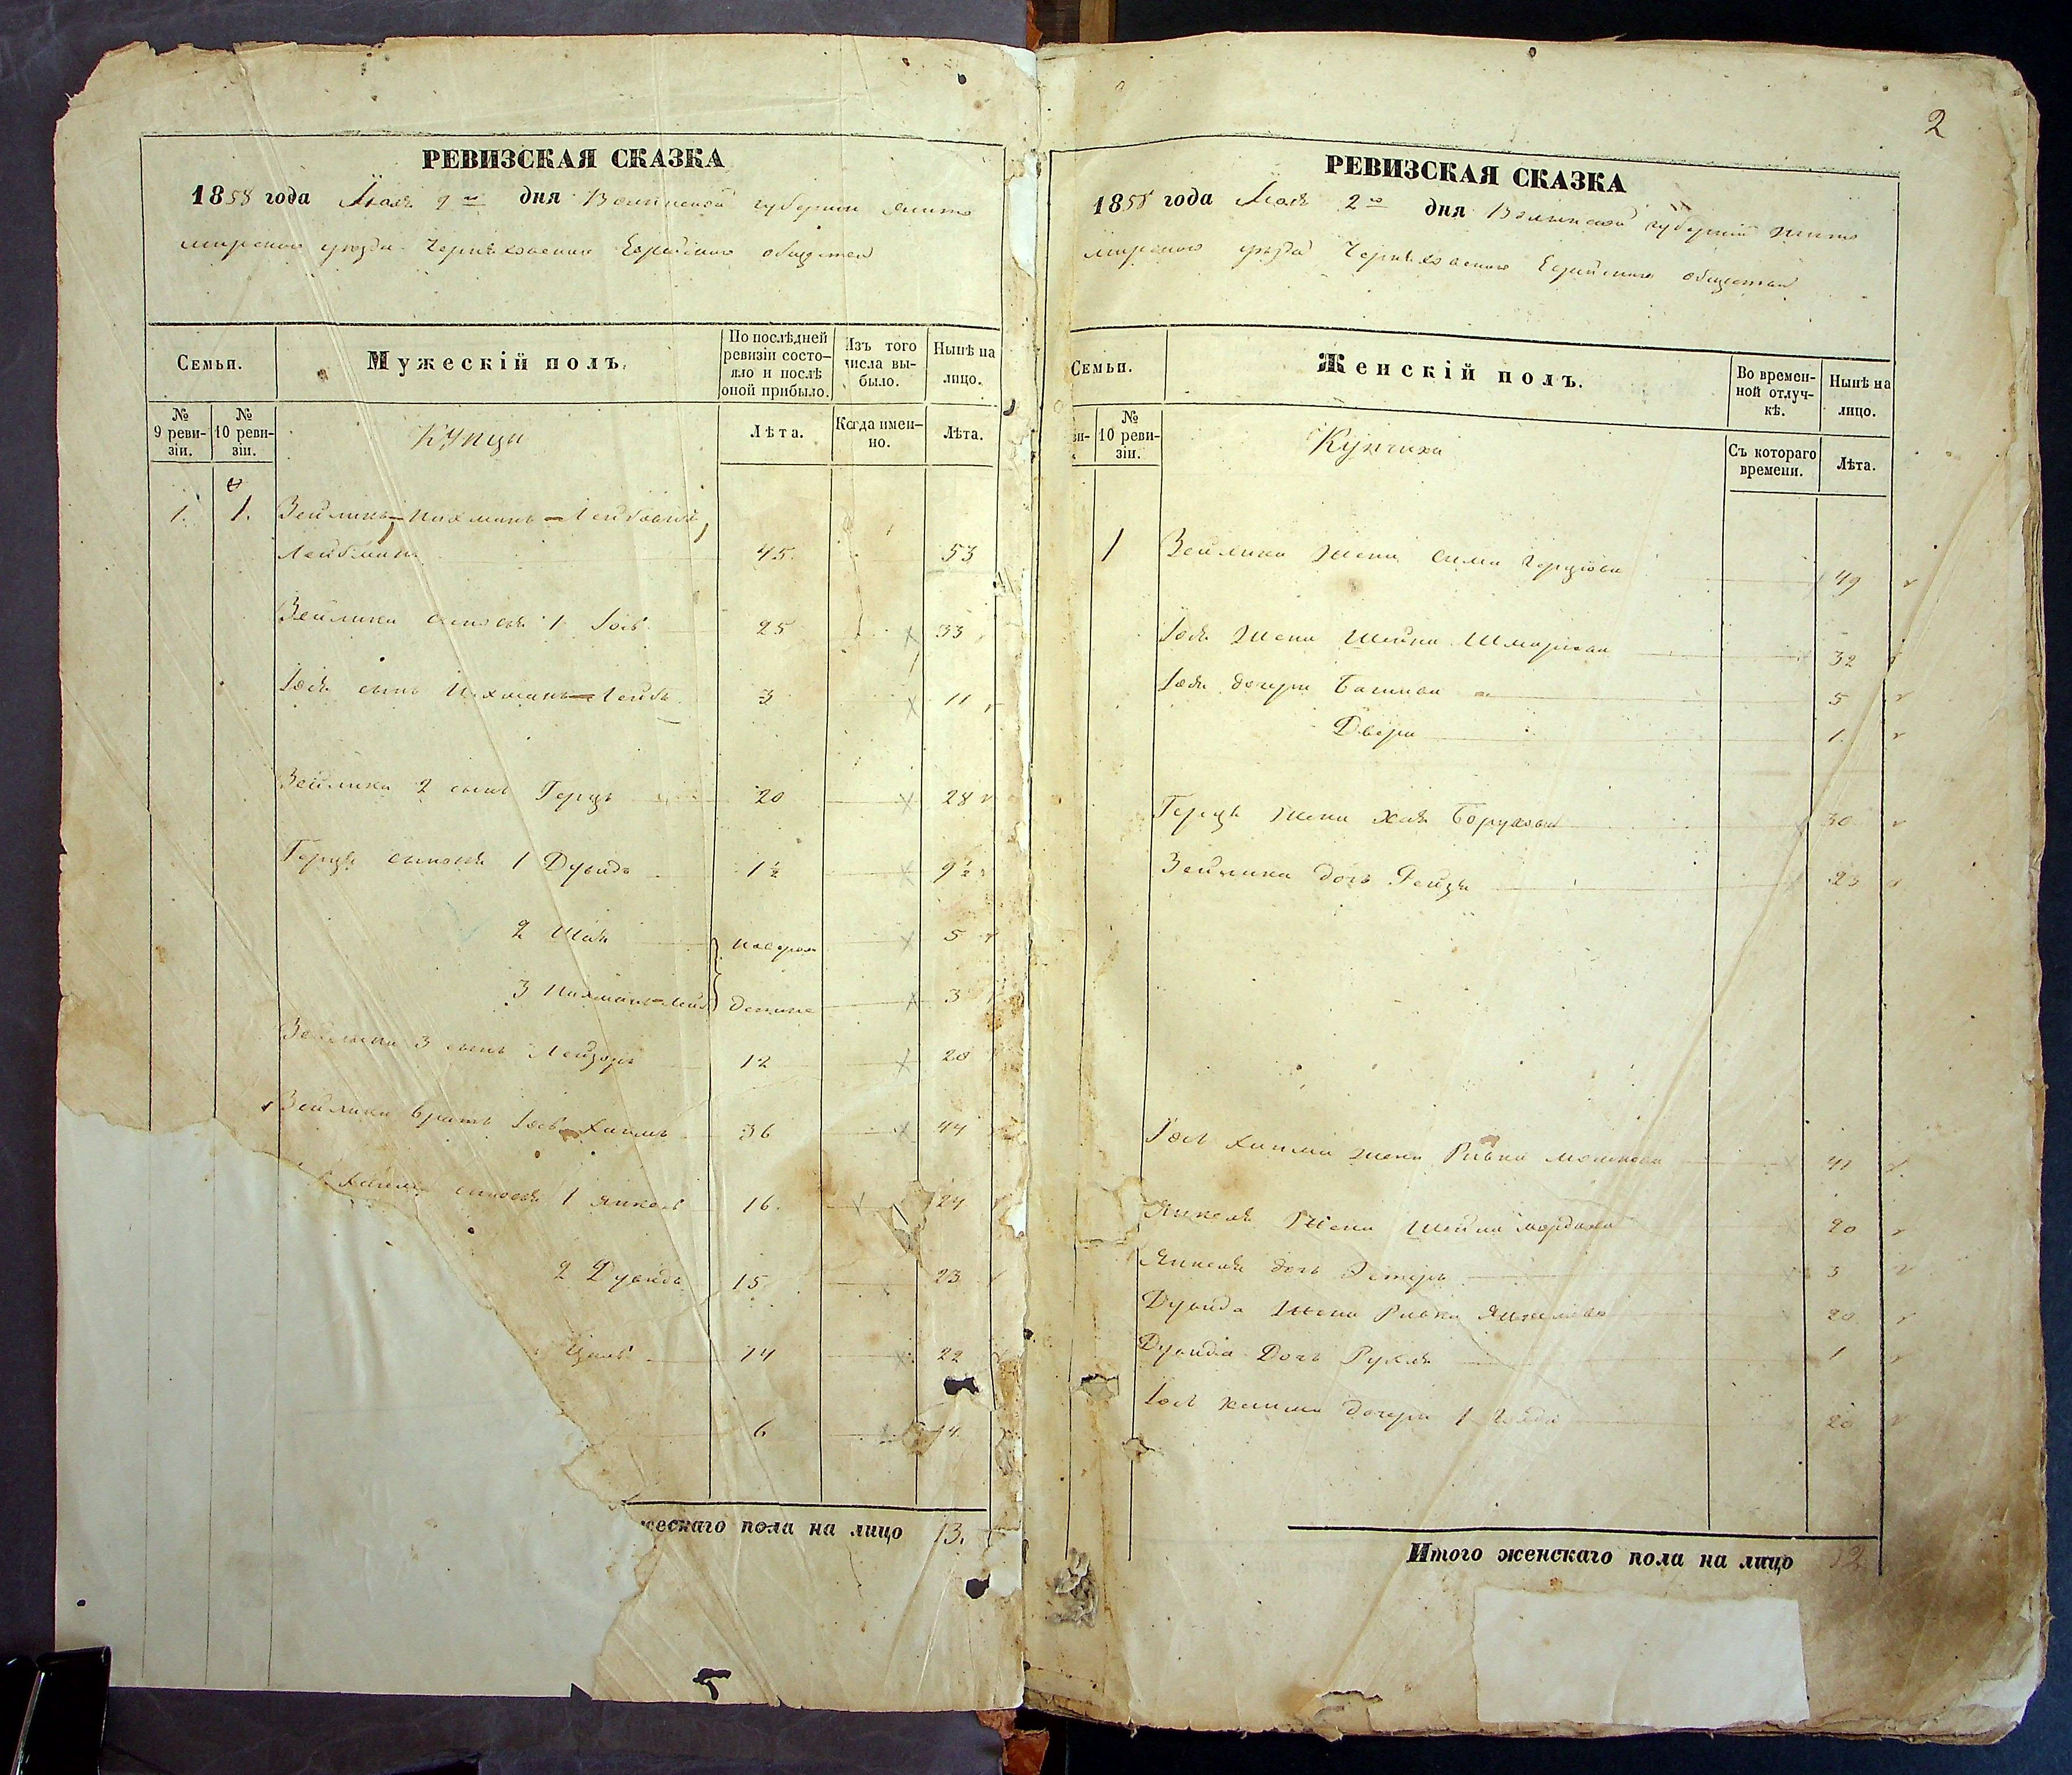 РЕВИЗСКАЯ СКАЗКА
1858 года Мая 2го дня Волынской губернии Жито
мирского уезда Черняховского Еврейского общества
Семьи.
Мужескій полъ.
По послѣдней ревизіи состояло и послѣ оной прибыло.
Изъ того числа выбыло.
Нынѣ на лицо.
№ 9 ревизіи.
№ 10 ревизіи.
Купцы
Лѣта.
Когда именно.
Лѣта.
1. 1. Зейликъ Нахманъ-Лейбовичъ
Лейбманъ 45. 53
Зейлика сыновья 1 Іось 25 33
Іося сынъ Нахманъ-Лейбъ 3 11
Зейлика 2 сынъ Герцъ 20 28
Герца сыновья 1 Дувидъ 1½ 9½
2 5
3 Нахманъ-Лейб 3
Зейлика 3 сынъ Лейзоръ 12 20
Зейлика братъ Іось Хаимъ 36 44
Хаима сыновья 1 Янкель 16. 24
2 Дувидъ 15 23
14 22
6 14
жескаго пола на лицо 13.
2
РЕВИЗСКАЯ СКАЗКА
1858 года Мая 2го дня Волынской губерніи Жито
мирского уезда Черняховского Еврейского общества
Семьи.
Женскій полъ.
Во временной отлучкѣ.
Нынѣ на лицо.
№ 10 ревизіи.
Купчиха
Съ котораго времени.
Лѣта.
1 Зейлика жена Сима Герцова 49
Іося жена Шейна Шмариова 32
Іося дочери 5
Двера 1
Герца жена Хая Борухова 30
Зейлика дочь Рейзя 23
Іось Хаима жена Ривка Мошкова 41
Янкеля жена Шейна 20
Янкеля дочь Эстеръ 3
Дувида жена Ривка Янкелева 20
Дувида дочь Рухля 1
Іось Хаима дочери 1 20
Итого женскаго пола на лицо 12